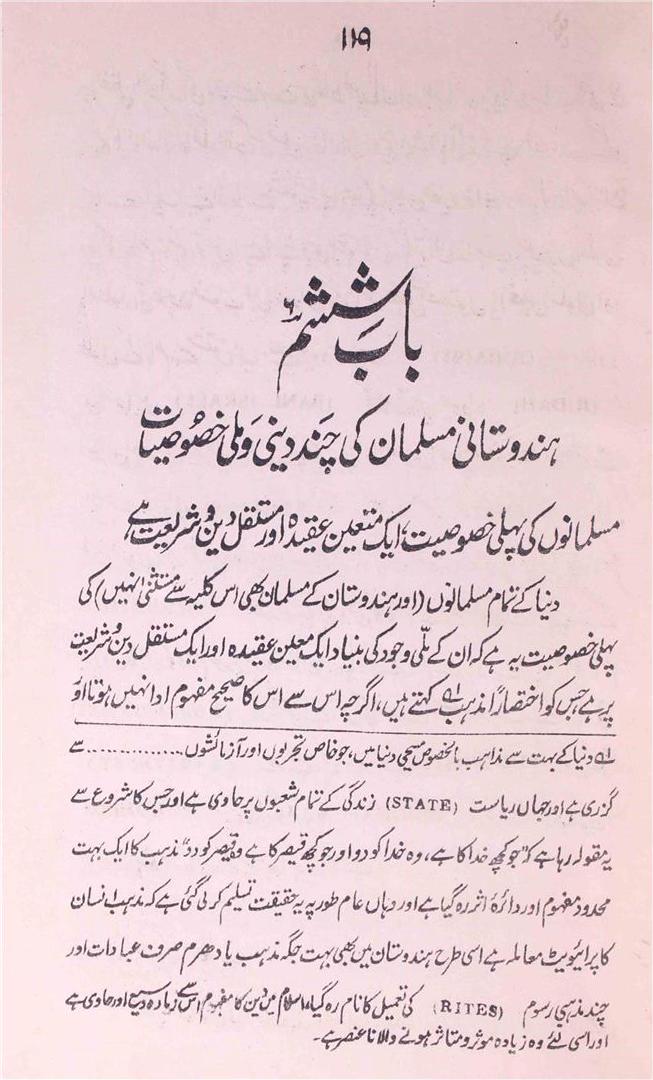 ۱۱۹
باب ششم
ہندوستانی مسلمان کی چند دینی و ملی خصوصیات
مسلمانوں کی پہلی خصوصیت، ایک متعین عقیدہ اور مستقل دین و شریعت ہے
دنیا کے تمام مسلمانوں (اور ہندوستان کے مسلمان بھی اس کلیہ سے مستثنیٰ نہیں) کی
پہلی خصوصیت یہ ہے کہ ان کے ملّی وجود کی بنیاد ایک معین عقیدہ اور ایک مستقل دین و شریعت
پر ہے جس کو اختصاراً مذہب ۱ کہتے ہیں، اگرچہ اس سے اس کا صحیح مفہوم ادا نہیں ہوتا اور
۱ دنیا کے بہت سے مذاہب بالخصوص مسیحی دنیا میں، جو خاص تجربوں اور آزمائشوں.............. سے
گزری ہے اور جہاں ریاست (STATE) زندگی کے تمام شعبوں پر حاوی ہے اور جس کا شروع سے
یہ مقولہ رہا ہے کہ ”جو کچھ خدا کا ہے، وہ خدا کو دو اور جو کچھ قیصر کا ہے وہ قیصر کو دو“ مذہب کا ایک بہت
محدود مفہوم اور دائرۂ اثر رہ گیا ہے اور وہاں عام طور پہ یہ حقیقت تسلیم کر لی گئی ہے کہ مذہب انسان
کا پرائیویٹ معاملہ ہے اسی طرح ہندوستان میں بھی بہت جگہ مذہب یا دھرم صرف عبادات اور
چند مذہبی رسوم (RITES) کی تعمیل کا نام رہ گیا، اسلام میں دین کا مفہوم اس سے زیادہ وسیع اور حاوی ہے
اور اسی لئے وہ زیادہ موثر و متاثر ہونے والا نا عنصر ہے۔